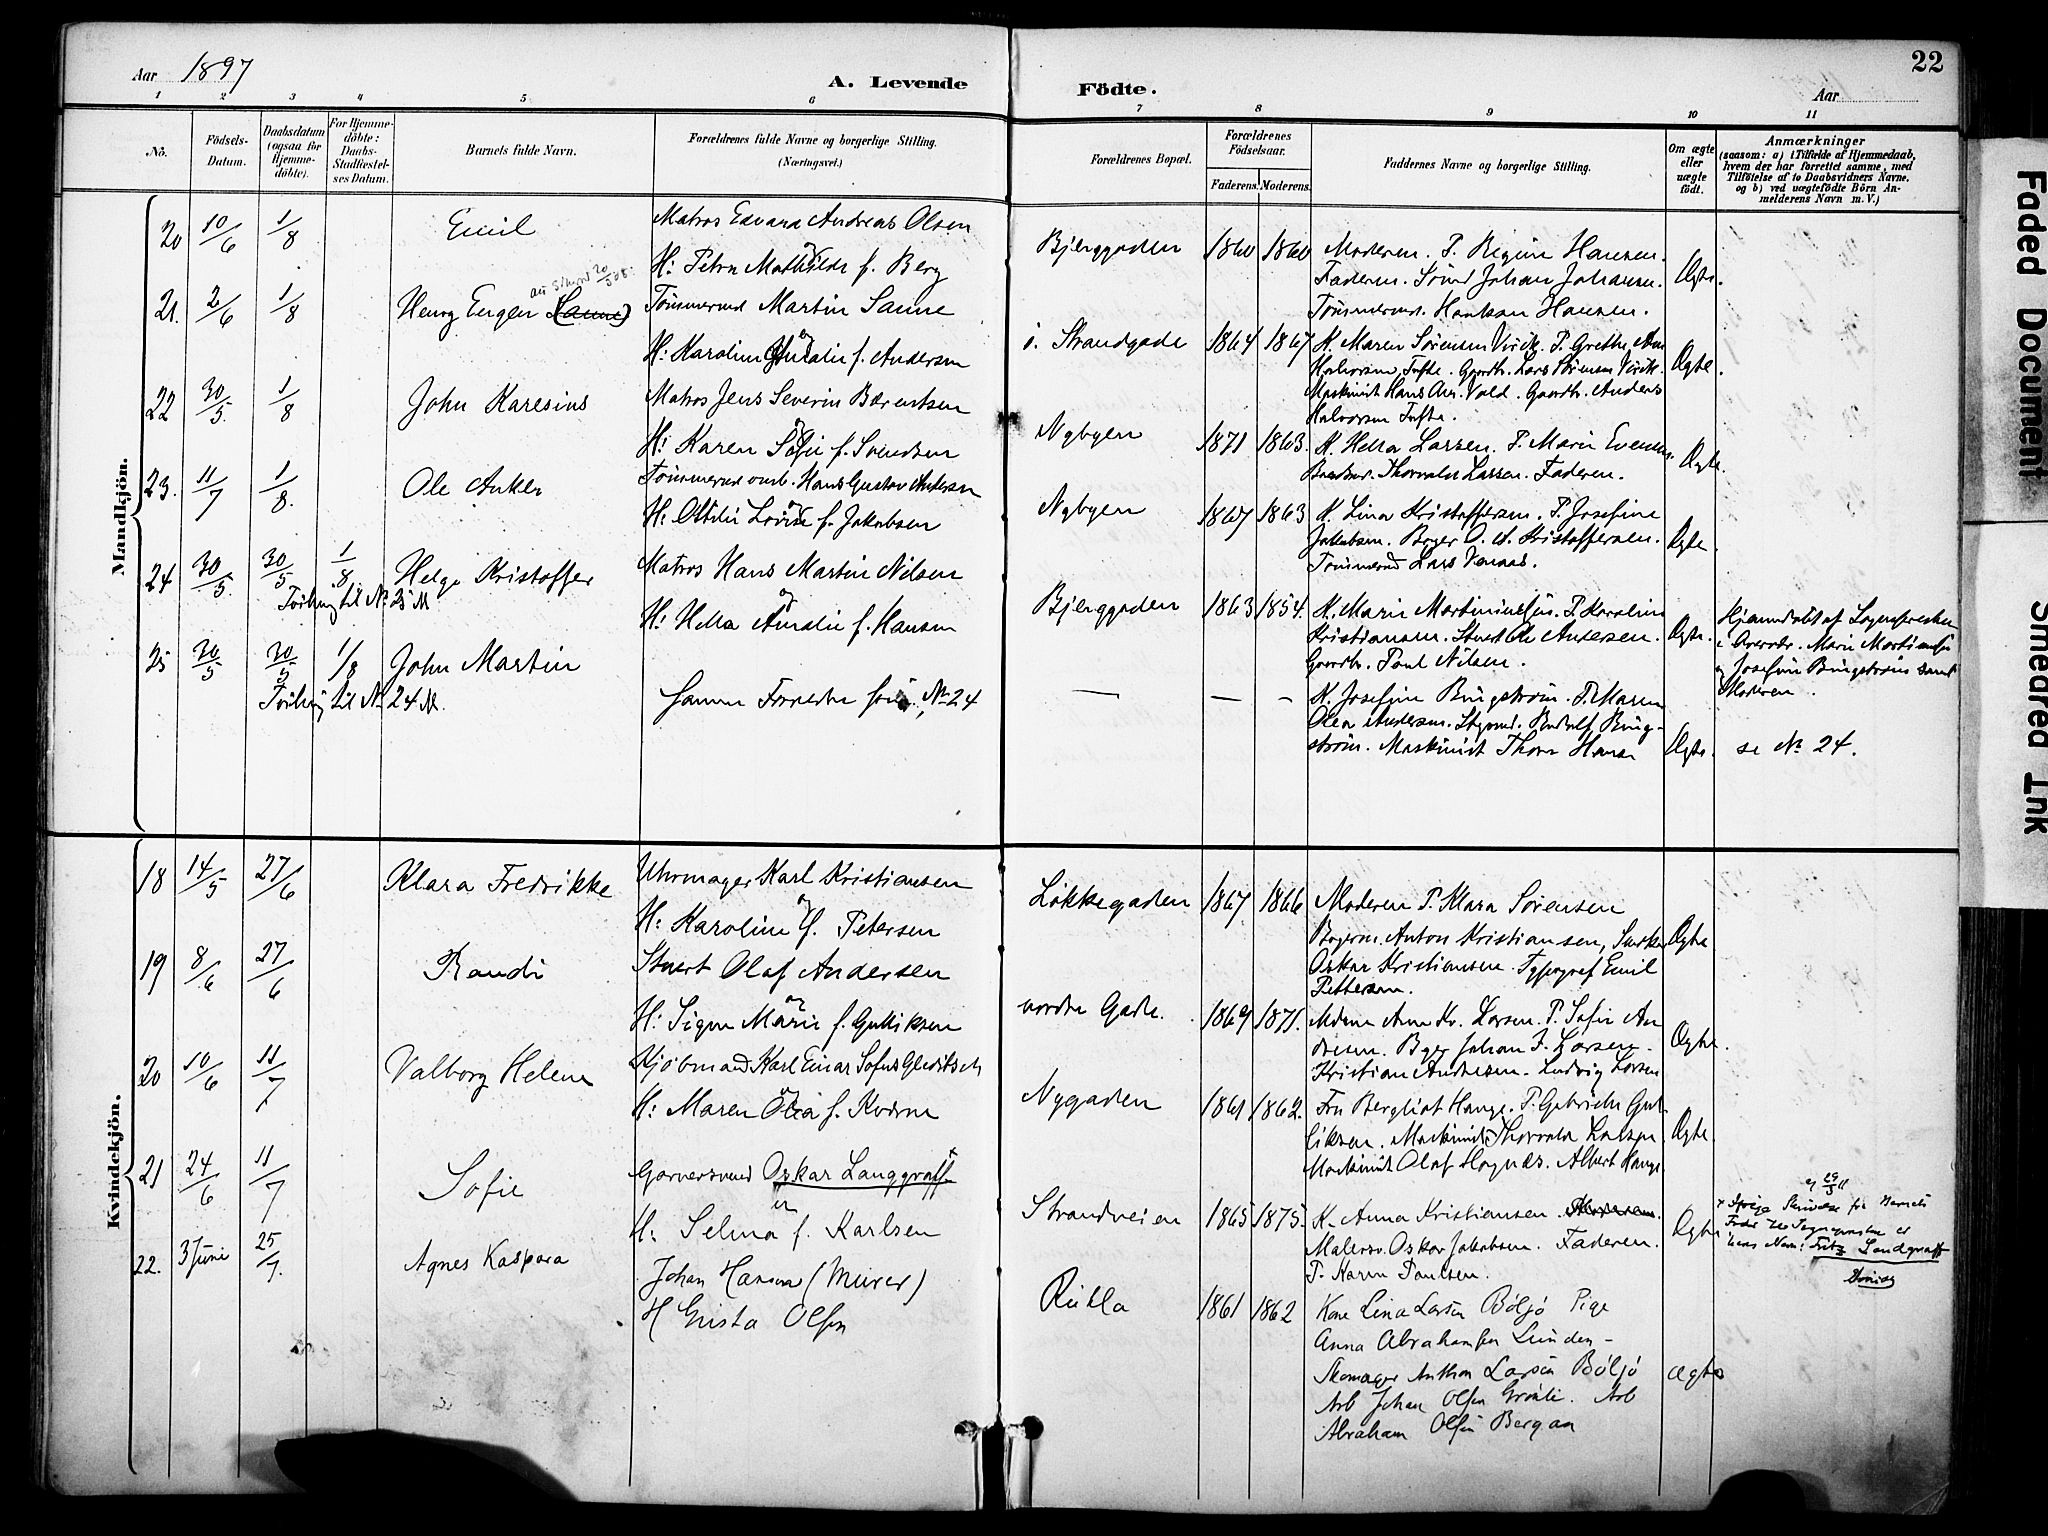 Aar 1897
A. Levende
Födte.
Aar
22
1 2 3 4 5 6 7 8 9 10 11
No.
Födsels-
Datum.
Daabsdatum
(ogsaa for
Hjemme-
döbte).
For Hjemme-
döbte:
Daabs-
Stadfæstel-
ses Datum.
Barnets fulde Navn.
Forældrenes fulde Navne og borgerlige Stilling.
(Næringsvei.)
Forældrenes Bopæl.
Forældrenes
Födselsaar.
Faderens. Moderens.
Faddernes Navne og borgerlige Stilling.
Om ægte
eller
uægte
födt.
Anmærkninger
(saasom: a) i Tilfælde af Hjemmedaab,
hvem der har forrettet samme, med
Tilföielse af to Daabsvidners Navne,
og b) ved uægtefödte Börn An-
melderens Navn m. V.)
Mandkjön.
20 10/6 1/8 Emil
Matros Edvard Andreas Olsen
og
H: Petra Mathilde f. Berg
Bjerggaden 1860 1860
Moderen. P. Regine Hansen.
Faderen. Johan Johansen.
Hansen.
Ægte.
21. 2/6 1/8 Henry Eugen (Sanne)
Tømmermd Martin Sanne
og
H: Karoline Amalie f. Andersen
ø. Strandgade 1864 1867
K. Maren Sørensen Virik. P. Grethe
Halvorsen Tufte. Gaardbr. Lars Sørensen Virik.
Maskinist Hans And. Vold. Gaardbr. Anders
Halvorsen Tufte.
Ægte.
22 30/5. 1/8 John Karesius
Matros Jens Severin Berntsen
og
H: Karen Sofie f. Svendsen
Nybyen 1871 1863.
K. Hella Larsen. P. Marie
Thorvald Larsen. Faderen.
Ægte.
23. 11/7 1/8. Ole Anker
Tømmermd Hans Gustav Andersen
og
H: Ottilie Lovise f. Jakobsen
Nybyen 1867 1863
K. Lina Kristoffersen. P. Josefine
Jakobsen. Bager O. A. Kristoffersen.
Tømmermd Lars
Ægte.
24 30/5. 30/5 1/8 Helge Kristoffer
Tvilling til No 25 M
Matros Hans Martin Nilsen
og
H: Hella Amalie f. Hansen
Bjerggaden 1863 1854.
K. Marie Martiniussen. P. Karoline
Kristiansen. Stuert Ole Andersen.
Gaardbr. Paul Nilsen.
Ægte.
Hjemmedøbt af
Marie Martiniussen
og Josefine Bingstrøm samt
Moderen.
25 30/5 30/5 1/8 John Martin
Tvilling til No 24 M.
Samme Forældre som No 24
— — -
K. Josefine Bingstrøm. P. Maren
Olea Andersen. Styrmd. Rudolf Bing-
strøm. Maskinist Thorv Hansen
Ægte.
se No 24.
Kvindekjön.
18 14/5 27/6 Klara Fredrikke
Uhrmager Karl Kristiansen
og
H: Karoline f. Petersen
Løkkegaden 1867. 1866
Moderen P. Klara Sørensen
Bagerm. Anton Kristiansen,
Oskar Kristiansen. Typograf Emil
Pettersen.
Ægte
19 8/6 27/6 Randi
Stuert Olaf Andersen
og
H: Signe Marie f. Gulliksen
nordre Gade. 1869 1871.
Mdme Ane Kr. Larsen. P. Sofie An
dresen. Bager Johan F. Larsen.
Kristian Andresen. Ludvig Larsen
Ægte.
20 10/6 11/7 Valborg Helene
Kjøbmand Karl Einar Sofus Gleditsch
og
H: Maren Olea f. Kverne
Nygaden 1861 1862.
Fru Bergliot Hauge. P. Gabriele Gul-
liksen. Maskinist Thorvald Larsen.
Maskinist Olaf Høgnæs. Albert Hauge.
Ægte.
21 24/6 11/7 Sofie
Garversvend Oskar Langgraff x
og
H: Selma f. Karlsen
Strandveien 1865 1875.
K. Anna Kristiansen.
Malersv. Oskar Jakobsen. Faderen.
P. Karen Paulsen.
Ægte
x Ifølge Skrivelse fra Barnets
Fader til Sognepresten er
hans Navn: Fritz Landgraff
22. 3 Juni 25/7. Agnes Kaspara
Johan Hansen (Murer)
H Grista Olsen
Rukla 1861 1862
Kone Lina Larsen Böljö Pige
Anna Abrahamsen Lunden -
Skomager Anthon Larsen Böljö
Arb Johan Olsen Grønli. Arb
Abraham Olsen Bergan
Ægte
Faded Document
Smeared Ink